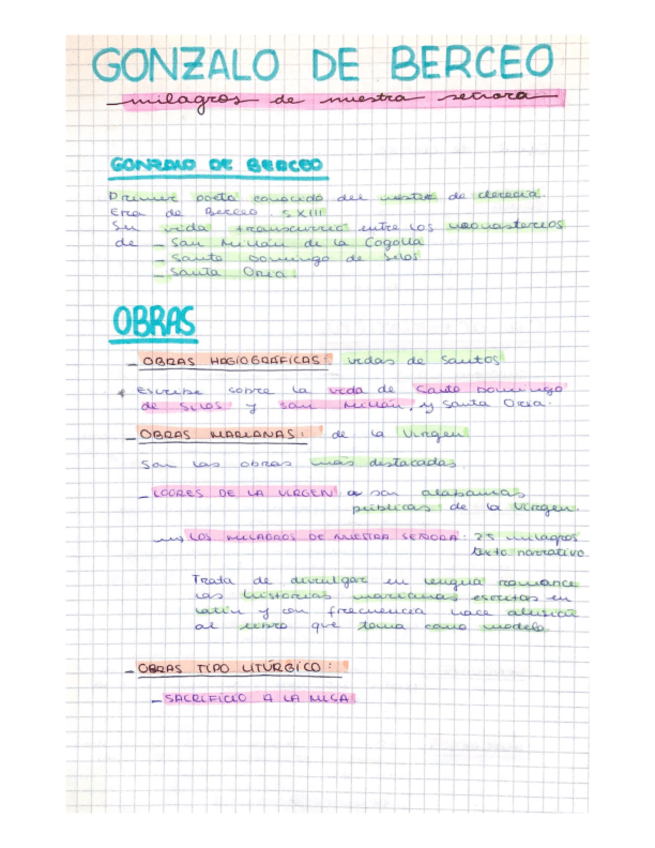 GONZALO DE BERCEO
milagros de nuestra señora
GONZALO DE BERCEO
Primer poeta conocido del mester de clerecía.
Era de Berceo. S XIII
Su vida transcurrió entre los monasterios
de - San Millán de la Cogolla
- Santo Domingo de Silos
- Santa Oria.
OBRAS
- OBRAS HAGIOGRÁFICAS: vidas de Santos
* Escribe sobre la vida de Santo Domingo
de Silos y San Millán, y Santa Oria.
- OBRAS MARIANAS: de la Virgen
Son las obras más destacadas
- LOORES DE LA VIRGEN son alabanzas
públicas de la Virgen.
LOS MILAGROS DE NUESTRA SEÑORA: 25 milagros
texto narrativo
Trata de divulgar en lengua romance
las historias marianas escritas en
latín y con frecuencia hace alusión
al libro que toma como modelo.
- OBRAS TIPO LITÚRGICO:
- SACRIFICIO A LA MISA